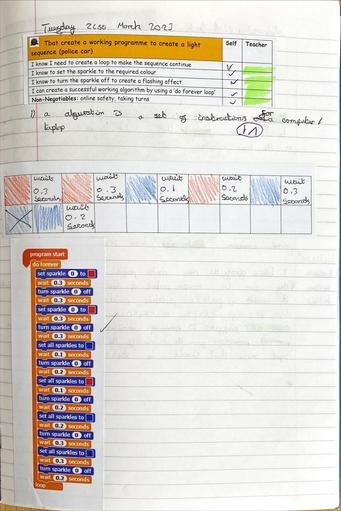 Tuesday 21st March 2023
That create a working programme to create a light
sequence (police car)
Self
Teacher
I know I need to create a loop to make the sequence continue
I know to set the sparkle to the required colour
I know to turn the sparkle off to create a flashing affect
I can create a successful working algorithm by using a 'do forever loop'
Non-Negotiables: online safety, taking turns
1) a is a set of instructions for a computer /
laptop
1/1
wait 0.3 Seconds
wait 0.3 Seconds
wait 0.1 Seconds
wait 0.2 Seconds
wait 0.3 Seconds
wait 0.2 Seconds
program start
do forever
set sparkle 0 to
wait 0.3 seconds
turn sparkle 0 off
wait 0.3 seconds
set sparkle 0 to
wait 0.3 seconds
turn sparkle 0 off
wait 0.3 seconds
set all sparkles to
wait 0.1 seconds
turn sparkle 0 off
wait 0.2 seconds
set all sparkles to
wait 0.1 seconds
turn sparkle 0 off
wait 0.2 seconds
set all sparkles to
wait 0.2 seconds
turn sparkle 0 off
wait 0.3 seconds
set all sparkles to
wait 0.3 seconds
turn sparkle 0 off
wait 0.2 seconds
loop